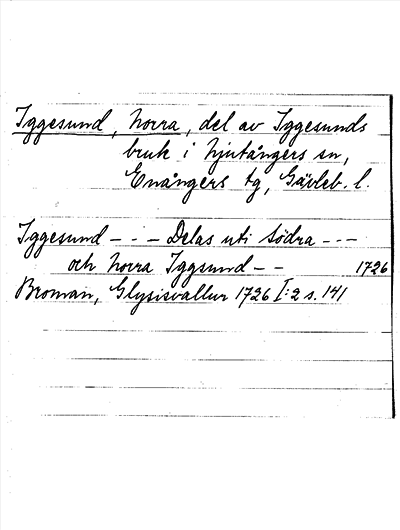 Iggesund, Norra, del av Iggesunds
bruk i Njutångers sn,
Enångers tg, Gävleb. l.
Iggesund - - - Delas uti Södra - - -
och Norra Iggsund - - 1726
Broman, Glysisvallur 1726 I:2 s. 141